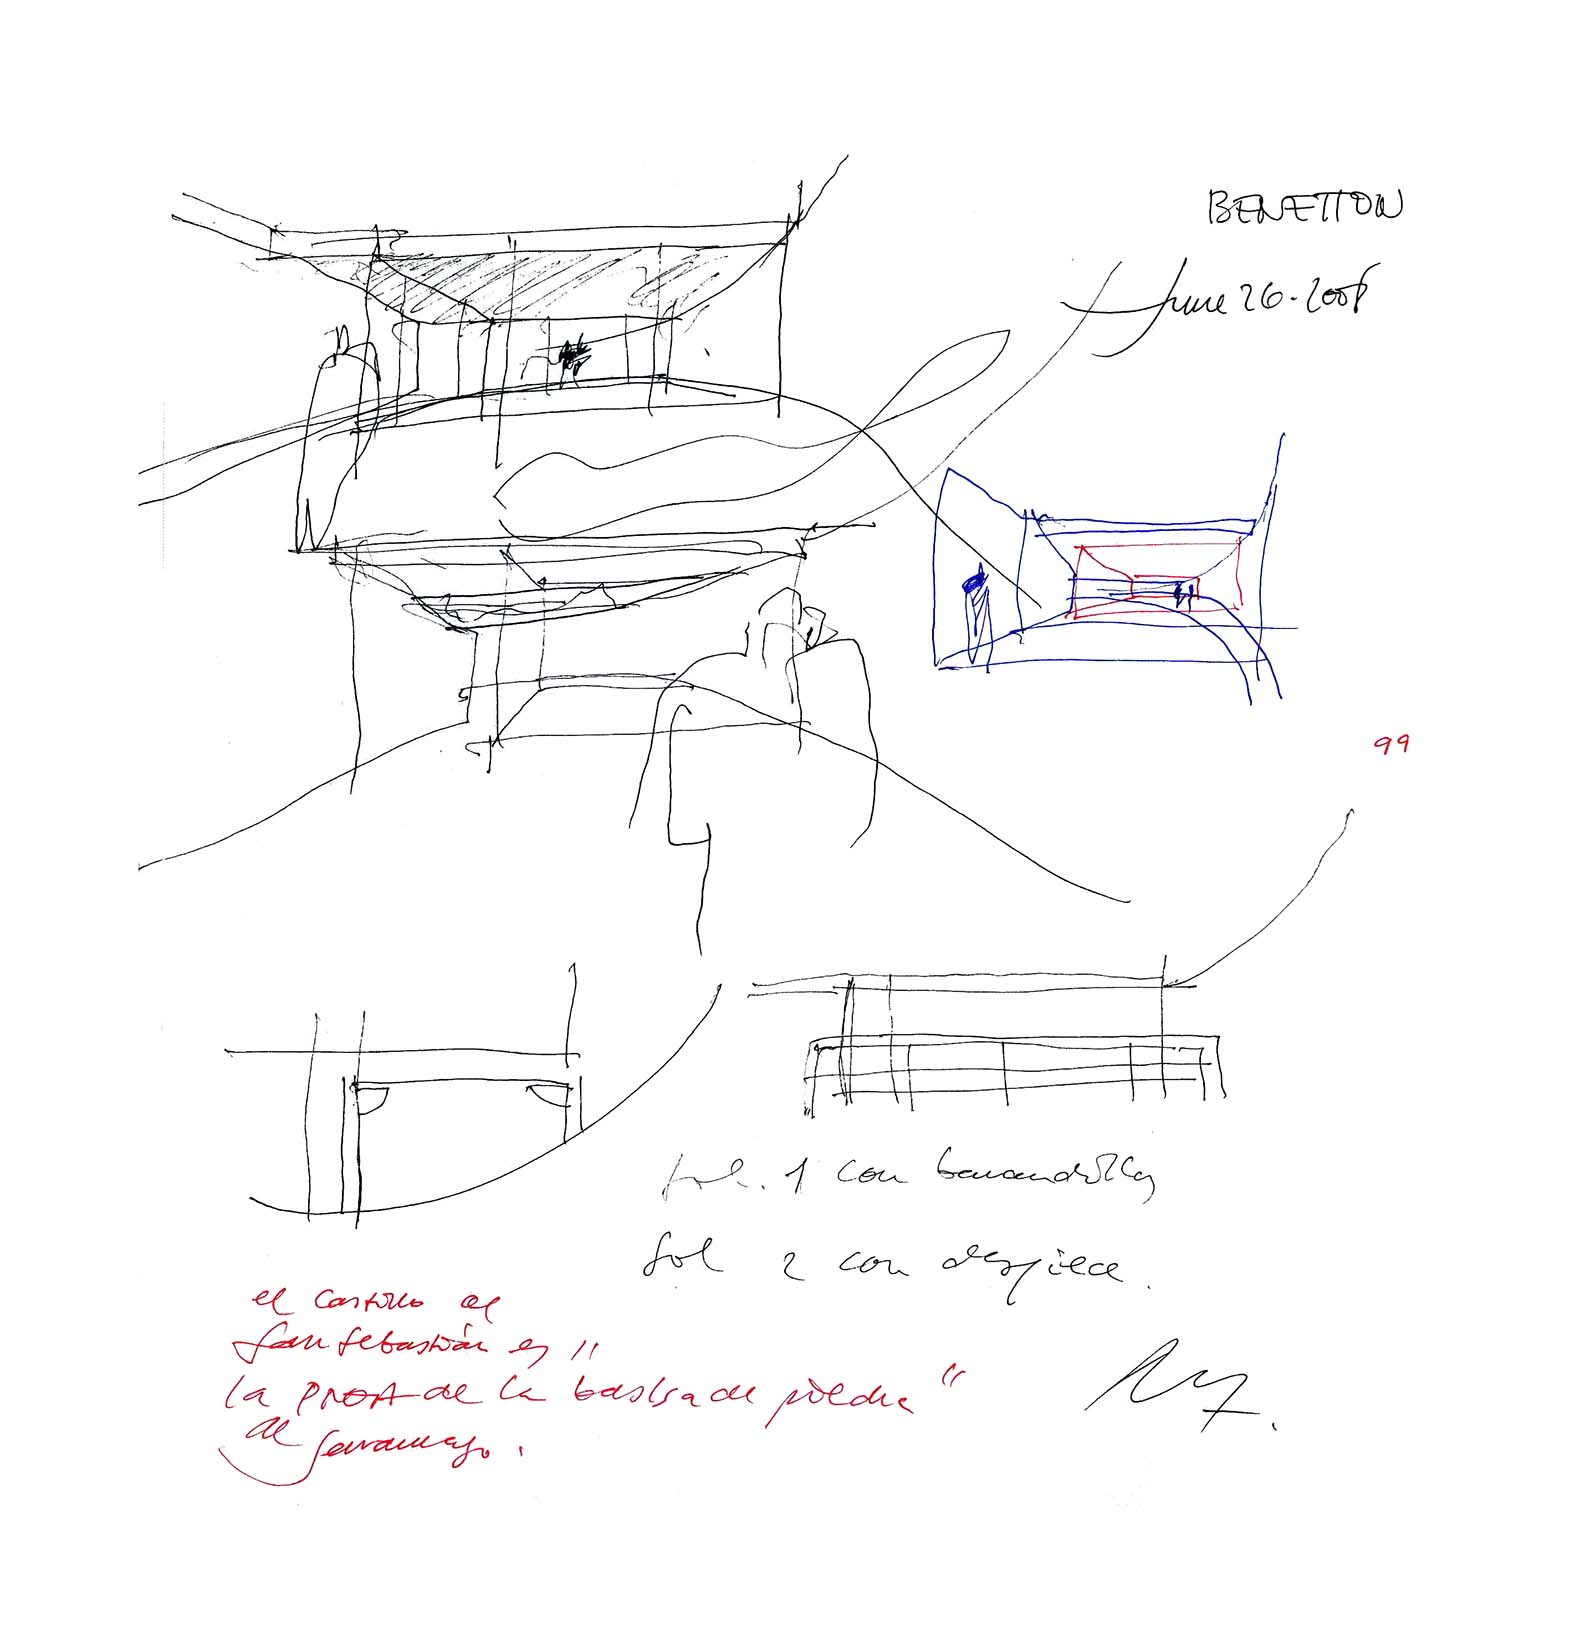 BENETTON
June 26-2008
99
Sol. 1 con barandilla
Sol 2 con despiece.
el Castillo de
San Sebastián es "
la PROA de la balsa de piedra"
de Saramago.